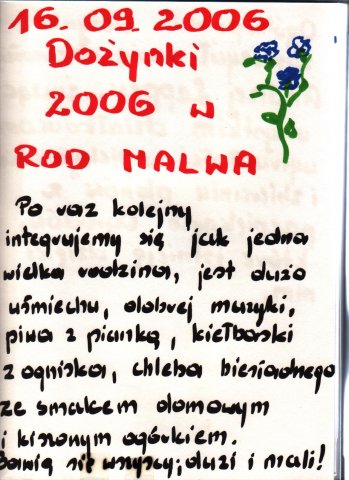 16.09.2006
Dożynki
2006 w
ROD MALWA
Po raz kolejny
integrujemy się jak jedna
wielka rodzina, jest dużo
uśmiechu, dobrej muzyki,
piwa z pianką, kiełbaski
z ogniska, chleba biesiadnego
ze smalcem domowym
i kiszonym ogórkiem.
Bawią się wszyscy; duzi i mali!